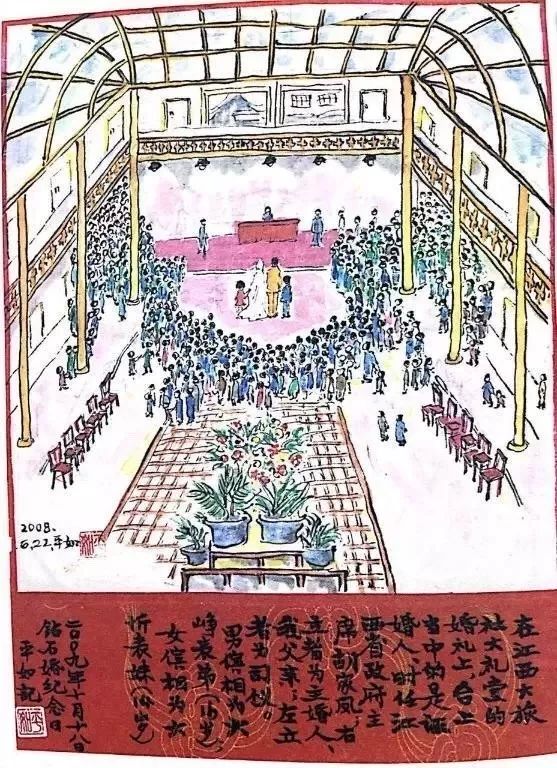 2008.
平如
在江西大旅
社大礼堂的
婚礼上，台上
当中的是证
婚人、时任江
西省政府主
席胡家凤，右
立者为主婚人、
我父亲，左立
者为司仪。
男傧相为
峥表弟
女傧相为
忻表妹（14岁）
二〇〇九年十月十八日
钻石婚纪念日
平如记